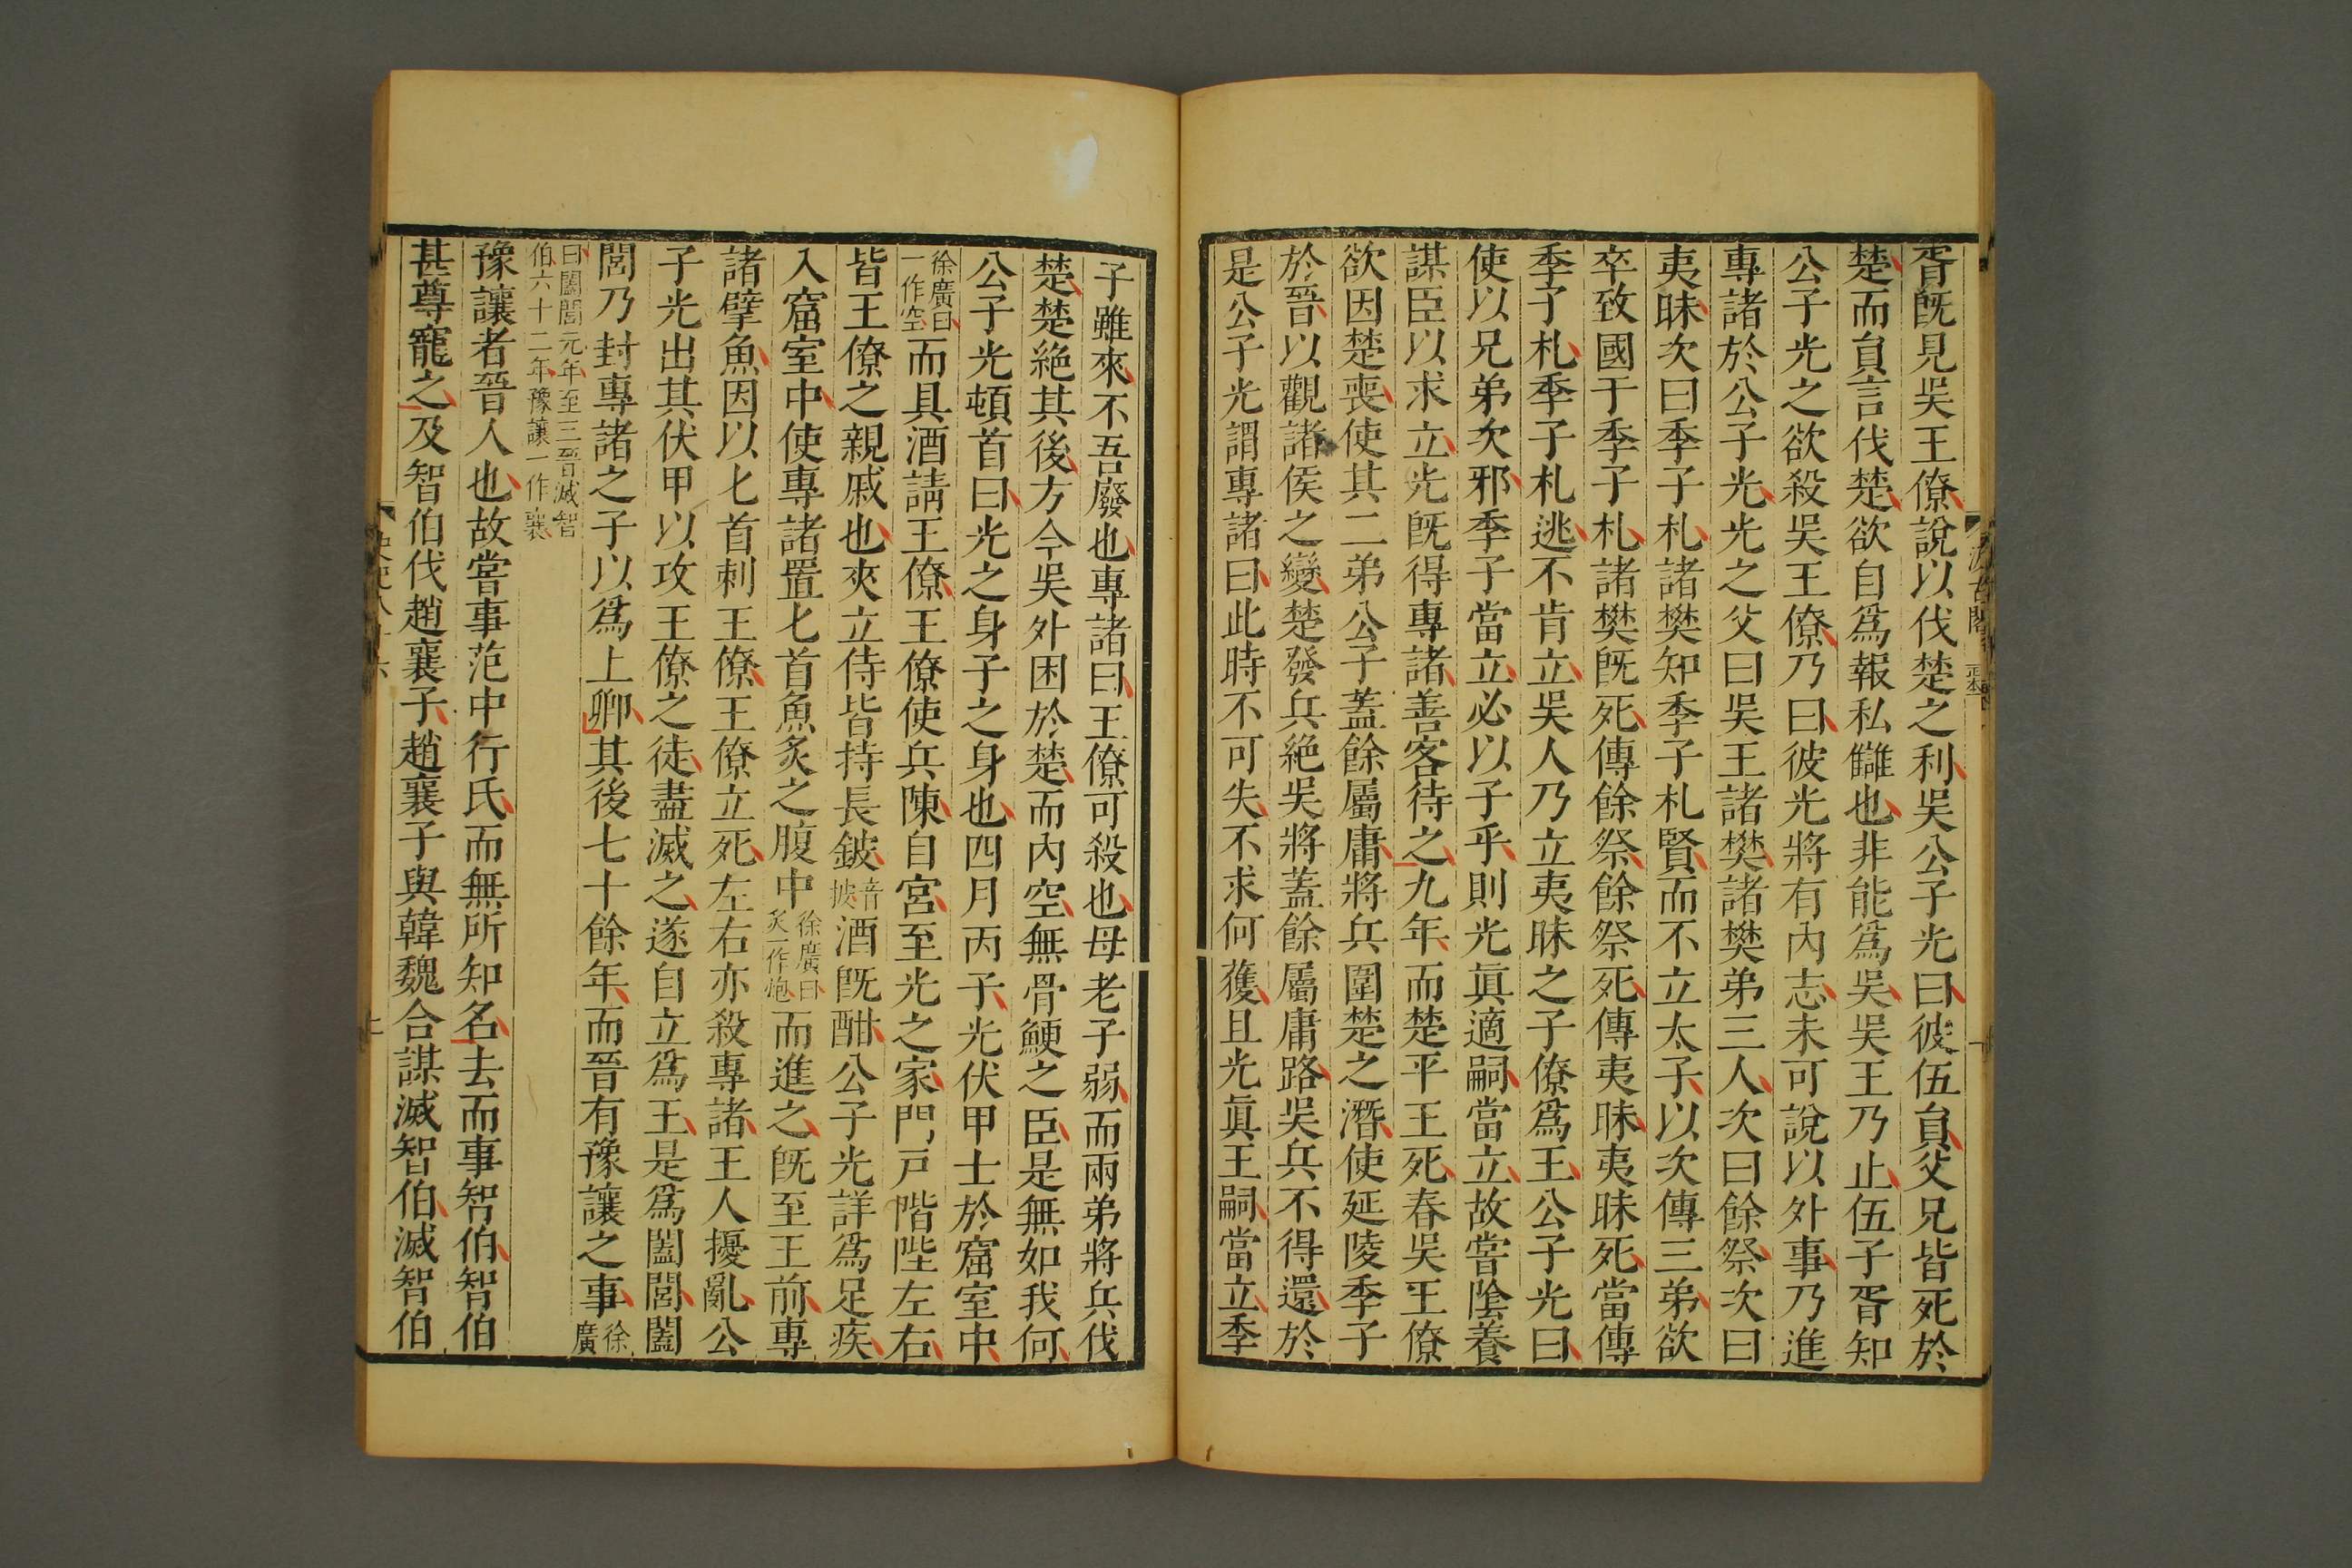 胥旣見吳王僚說以伐楚之利吳公子光曰彼伍員父兄皆死於
楚而員言伐楚欲自爲報私讎也非能爲吳吳王乃止伍子胥知
公子光之欲殺吳王僚乃曰彼光將有內志未可說以外事乃進
專諸於公子光光之父曰吳王諸樊諸樊弟三人次曰餘祭次曰
夷眛次曰季子札諸樊知季子札賢而不立太子以次傳三弟欲
卒致國于季子札諸樊旣死傳餘祭餘祭死傳夷眛夷眛死當傳
季子札季子札逃不肯立吳人乃立夷眛之子僚爲王公子光曰
使以兄弟次邪季子當立必以子乎則光眞適嗣當立故嘗陰養
謀臣以求立光旣得專諸善客待之九年而楚平王死春吳王僚
欲因楚喪使其二弟公子蓋餘屬庸將兵圍楚之潛使延陵季子
於晉以觀諸侯之變楚發兵絶吳將蓋餘屬庸路吳兵不得還於
是公子光謂專諸曰此時不可失不求何獲且光眞王嗣當立季
子雖來不吾廢也專諸曰王僚可殺也母老子弱而兩弟將兵伐
楚楚絶其後方今吳外困於楚而內空無骨鯁之臣是無如我何
公子光頓首曰光之身子之身也四月丙子光伏甲士於窟室中
徐廣曰一作空而具酒請王僚王僚使兵陳自宮至光之家門戸階陛左右
皆王僚之親戚也夾立侍皆持長鈹音披酒旣酣公子光詳爲足疾
入窟室中使專諸置匕首魚炙之腹中徐廣曰炙一作炮而進之旣至王前專
諸擘魚因以匕首刺王僚王僚立死左右亦殺專諸王人擾亂公
子光出其伏甲以攻王僚之徒盡滅之遂自立爲王是爲闔閭闔
閭乃封專諸之子以爲上卿其後七十餘年而晉有豫讓之事徐廣
曰闔閭元年至三晉滅智伯六十二年豫讓一作襄
豫讓者晉人也故嘗事范中行氏而無所知名去而事智伯智伯
甚尊寵之及智伯伐趙襄子趙襄子與韓魏合謀滅智伯滅智伯